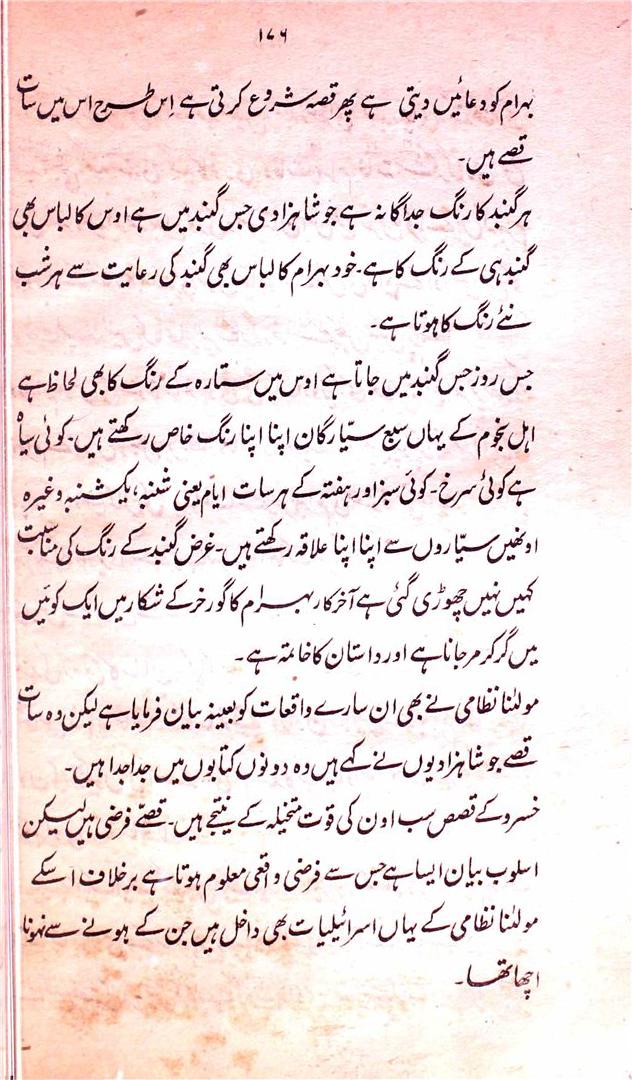 ۱۷۶
بہرام کو دعائیں دیتی ہے پھر قصہ شروع کرتی ہے اِس طرح اس میں سات
قصے ہیں۔
ہر گنبد کا رنگ جداگانہ ہے جو شاہزادی جس گنبد میں ہے اوس کا لباس بھی
گنبد ہی کے رنگ کا ہے۔ خود بہرام کا لباس بھی گنبد کی رعایت سے ہر شب
نئے رنگ کا ہوتا ہے۔
جس روز جس گنبد میں جاتا ہے اوس میں ستارہ کے رنگ کا بھی لحاظ ہے
اہل نجوم کے یہاں سبع سیّارگان اپنا اپنا رنگ خاص رکھتے ہیں۔ کوئی سیاہ
ہے کوئی سرخ۔ کوئی سبز اور ہفتہ کے ہر سات ایام یعنی شنبہ، یکشنبہ وغیرہ
اونھیں سیّاروں سے اپنا اپنا علاقہ رکھتے ہیں۔ غرض گنبد کے رنگ کی مناسبت
کہیں نہیں چھوڑی گئی ہے آخر کار بہرام کا گورخر کے شکار میں ایک کوئیں
میں گر کر مر جانا ہے اور داستان کا خاتمہ ہے۔
مولٰنا نظامی نے بھی ان سارے واقعات کو بعینہ بیان فرمایا ہے لیکن وہ سات
قصے جو شاہزادیوں نے کہے ہیں وہ دونوں کتابوں میں جدا جدا ہیں۔
خسرو کے قصص سب اون کی قوت متخیلہ کے نتیجے ہیں۔ قصّے فرضی ہیں لیکن
اسلوب بیان ایسا ہے جس سے فرضی واقعی معلوم ہوتا ہے برخلاف اسکے
مولٰنا نظامی کے یہاں اسرائیلیات بھی داخل ہیں جن کے ہونے سے نہونا
اچھا تھا۔